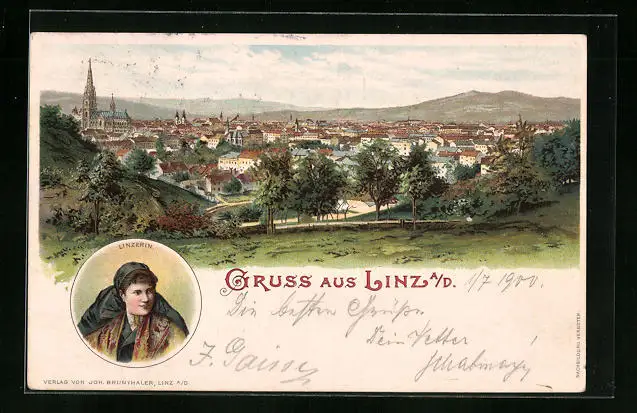 LINZERIN
GRUSS AUS LINZ A/D. 1/7 1900
Die besten Grüße
Dein Vetter
VERLAG VON JOH. BRUNTHALER, LINZ A/D.
NACHBILDUNG VERBOTEN